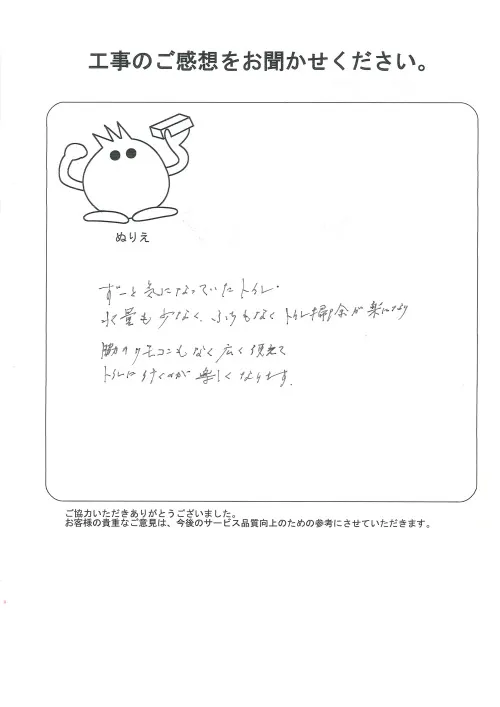 工事のご感想をお聞かせください。
ぬりえ
ずーと気になっていたトイレ・
水量も少なく、ふちもなくトイレ掃除が楽になり
脇のリモコンもなく広く使えて
トイレに行くのが楽しくなります。
ご協力いただきありがとうございました。
お客様の貴重なご意見は、今後のサービス品質向上のための参考にさせていただきます。